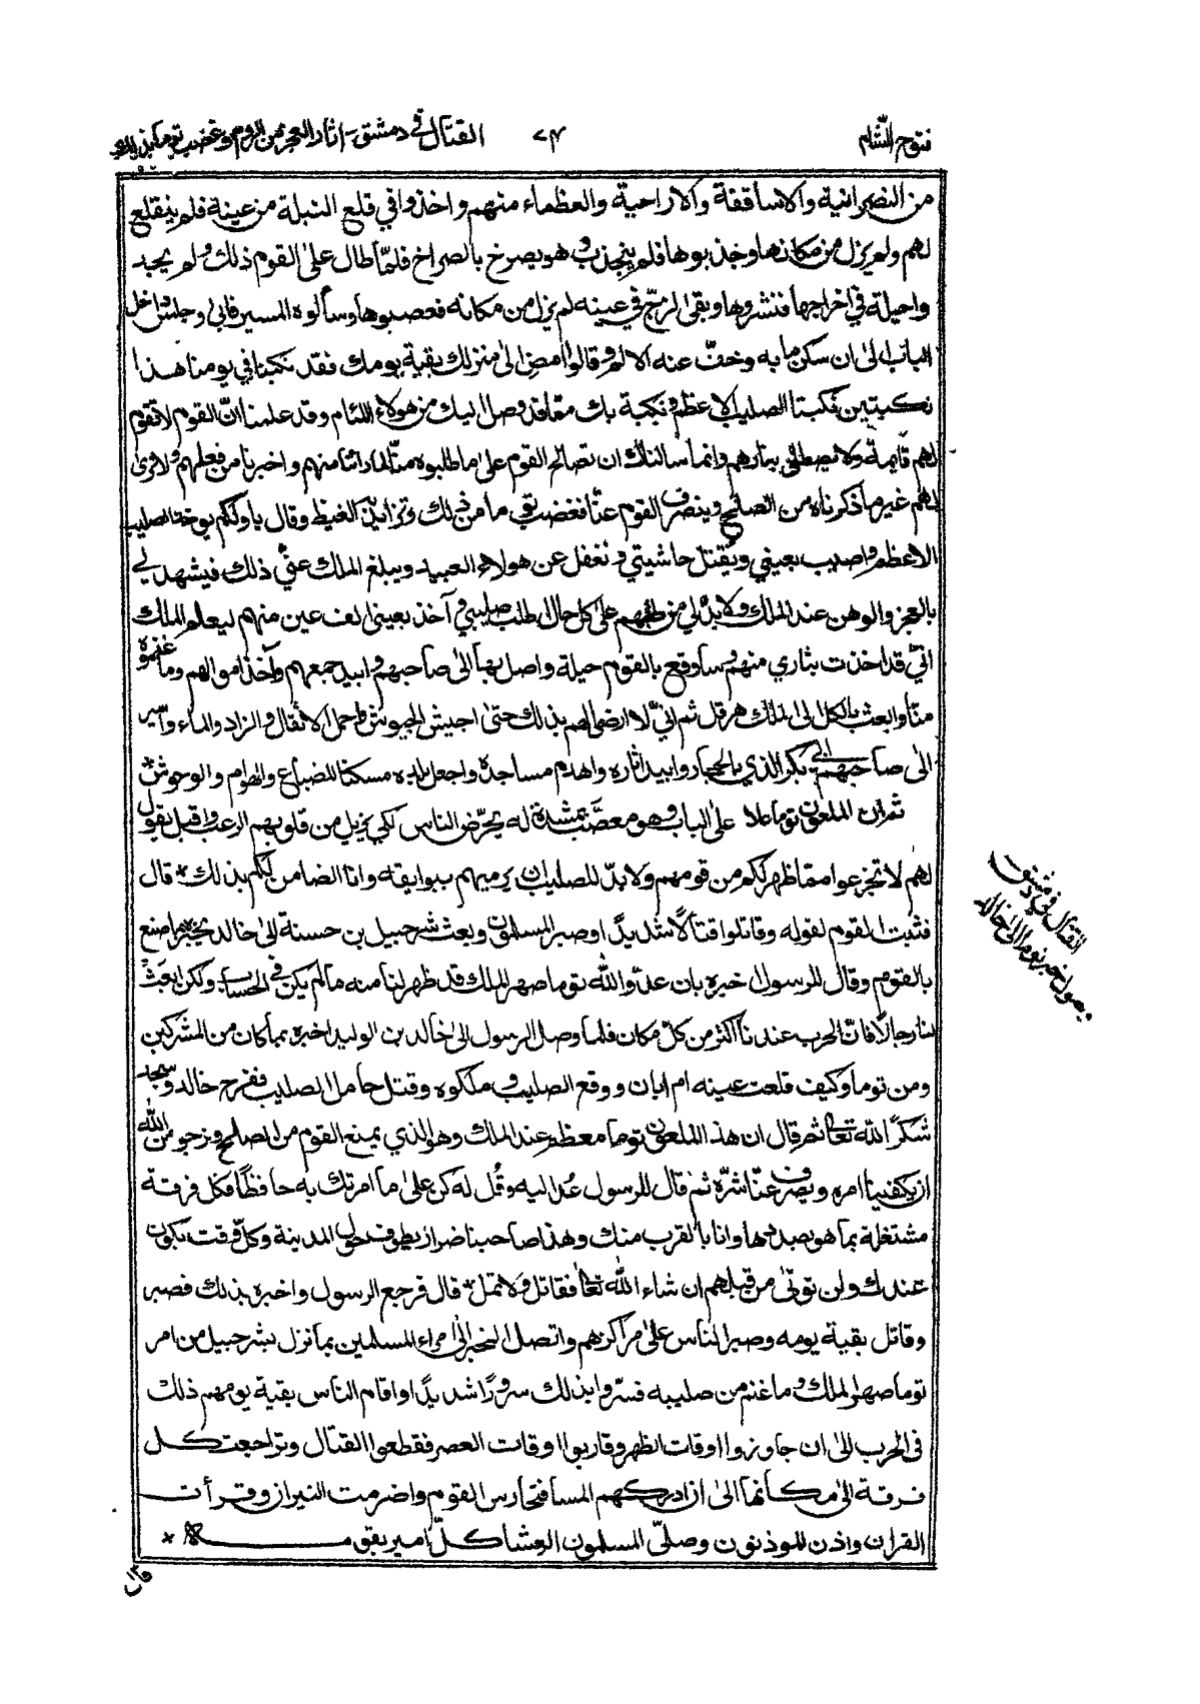 فتوح الشام
٧٤
القتال في دمشق - اثار العجز من الروم وغضب توما
من النصرانية والاساقفة والاراحية والعظماء منهم واخذوا في قلع النبلة من عينه فلم ينقلع
لهم ولم يزل من مكانها وجذبوها فلم ينجذب وهو يصرخ بالصراخ فلمّا طال على القوم ذلك ولم يجد
واحيلة في اخراجها فنشروها وبقى الزجّ في عينه لم يزل من مكانه فعصبوها وسألوه المسير فابى وجلس داخل
الباب الى ان سكن ما به وخفّ عنه الالم وقالوا امض الى منزلك بقية يومك فقد نكبنا في يومنا هذا
نكبتين نكبتا الصليب الاعظم ونكبة بك مما قد وصل اليك من هولاء اللئام وقد علمنا انّ القوم لا تقوم
لهم قايمة ولا يصطلى بنارهم وانما سالناك ان تصالح القوم على ما طلبوه منّا لما راينا منهم واخبرنا من فعلهم ولا نرى
لهم غير ما ذكرناه من الصلح وينصرف القوم عنّا فغضب توما من ذلك وتزايد به الغيظ وقال ياويلكم يوخذ الصليب
الاعظم واصيب بعيني ويُقتل حاشيتي ونغفل عن هولاء العبيد ويبلغ الملك عنّي ذلك فيشهد لي
بالعجز والوهن عند الملك ولا بدّ لي من طلبهم على كل حال اطلب صليبي وآخذ بعيني الف عين منهم ليعلم الملك
انّي قد اخذت بثاري منهم وساوقع بالقوم حيلة واصل بها الى صاحبهم وابيد جمعهم وآخذ اموالهم وما غنموه
منّا وابعث بالكل الى الملك هرقل ثم انّي لا ارضى لهم بذلك حتى اجيش الجيوش واحمل الاثقال والزاد والماء واسير
الى صاحبهم ابي بكر الذي بالحجاز وابيد اثاره واهدم مساجده واجعل بلده مسكنا للضباع والهوام والوحوش *
ثم ان الملعون توما علا على الباب وهو معصّب بمشدة له يحرّض الناس لكي يزيل من قلوبهم الرعب واقبل يقول
لهم لا تجزعوا مما ظهر لكم من قومهم ولا بدّ للصليب ان يرميهم ببوايقه وانا الضامن لكم بذلك * قال
فثبت القوم لقوله وقاتلوا قتالًا شديدًا وصبر المسلمون وبعث شرحبيل بن حسنة الى خالد يخبره بما صنع
بالقوم وقال للرسول اخبره بان عدوّ الله توما صهر الملك قد ظهر لنا منه ما لم يكن في الحساب ولكن ابعث
لنا رجالًا فانّ الحرب عندنا اكثر من كلّ مكان فلما وصل الرسول الى خالد بن الوليد اخبره بما كان من المشركين
ومن توما وكيف قلعت عينه ام ابان ووقع الصليب وملكوه وقتل حامل الصليب ففرح خالد وسجد
شكرًا لله تعالى ثم قال ان هذا الملعون توما معظم عند الملك وهو الذي يمنع القوم من الصلح ونرجو من الله
ان يكفينا امره ويصرف عنّا شرّه ثم قال للرسول عُد اليه وقُل له كن على ما امرتك به حافظًا فكل فرقة
مشتغلة بما هو بصددها وانا بالقرب منك وهذا صاحبنا ضرار يطوف حول المدينة وكلّ وقت يكون
عندك ولن توتى من قبلهم ان شاء الله تعالى فقاتل ولا تمل * قال فرجع الرسول واخبره بذلك فصبر
وقاتل بقية يومه وصبر الناس على مراكزهم واتصل الخبر الى امراء المسلمين بما نزل بشرحبيل من امر
توما صهر الملك وما غنم من صليبه فسرّوا بذلك سرورًا شديدًا واقام الناس بقية يومهم ذلك
في الحرب الى ان جاوزوا اوقات الظهر وقاربوا اوقات العصر فقطعوا القتال وتراجعت كل
فرقة الى مكانها الى ان ادركهم المسا فتحارس القوم واضرمت النيران وقرأت
القران واذن الموذنون وصلّى المسلمون العشا كلّ امير بقومه *
القتال في دمشق
وصول خبر توما الى خالد
قال